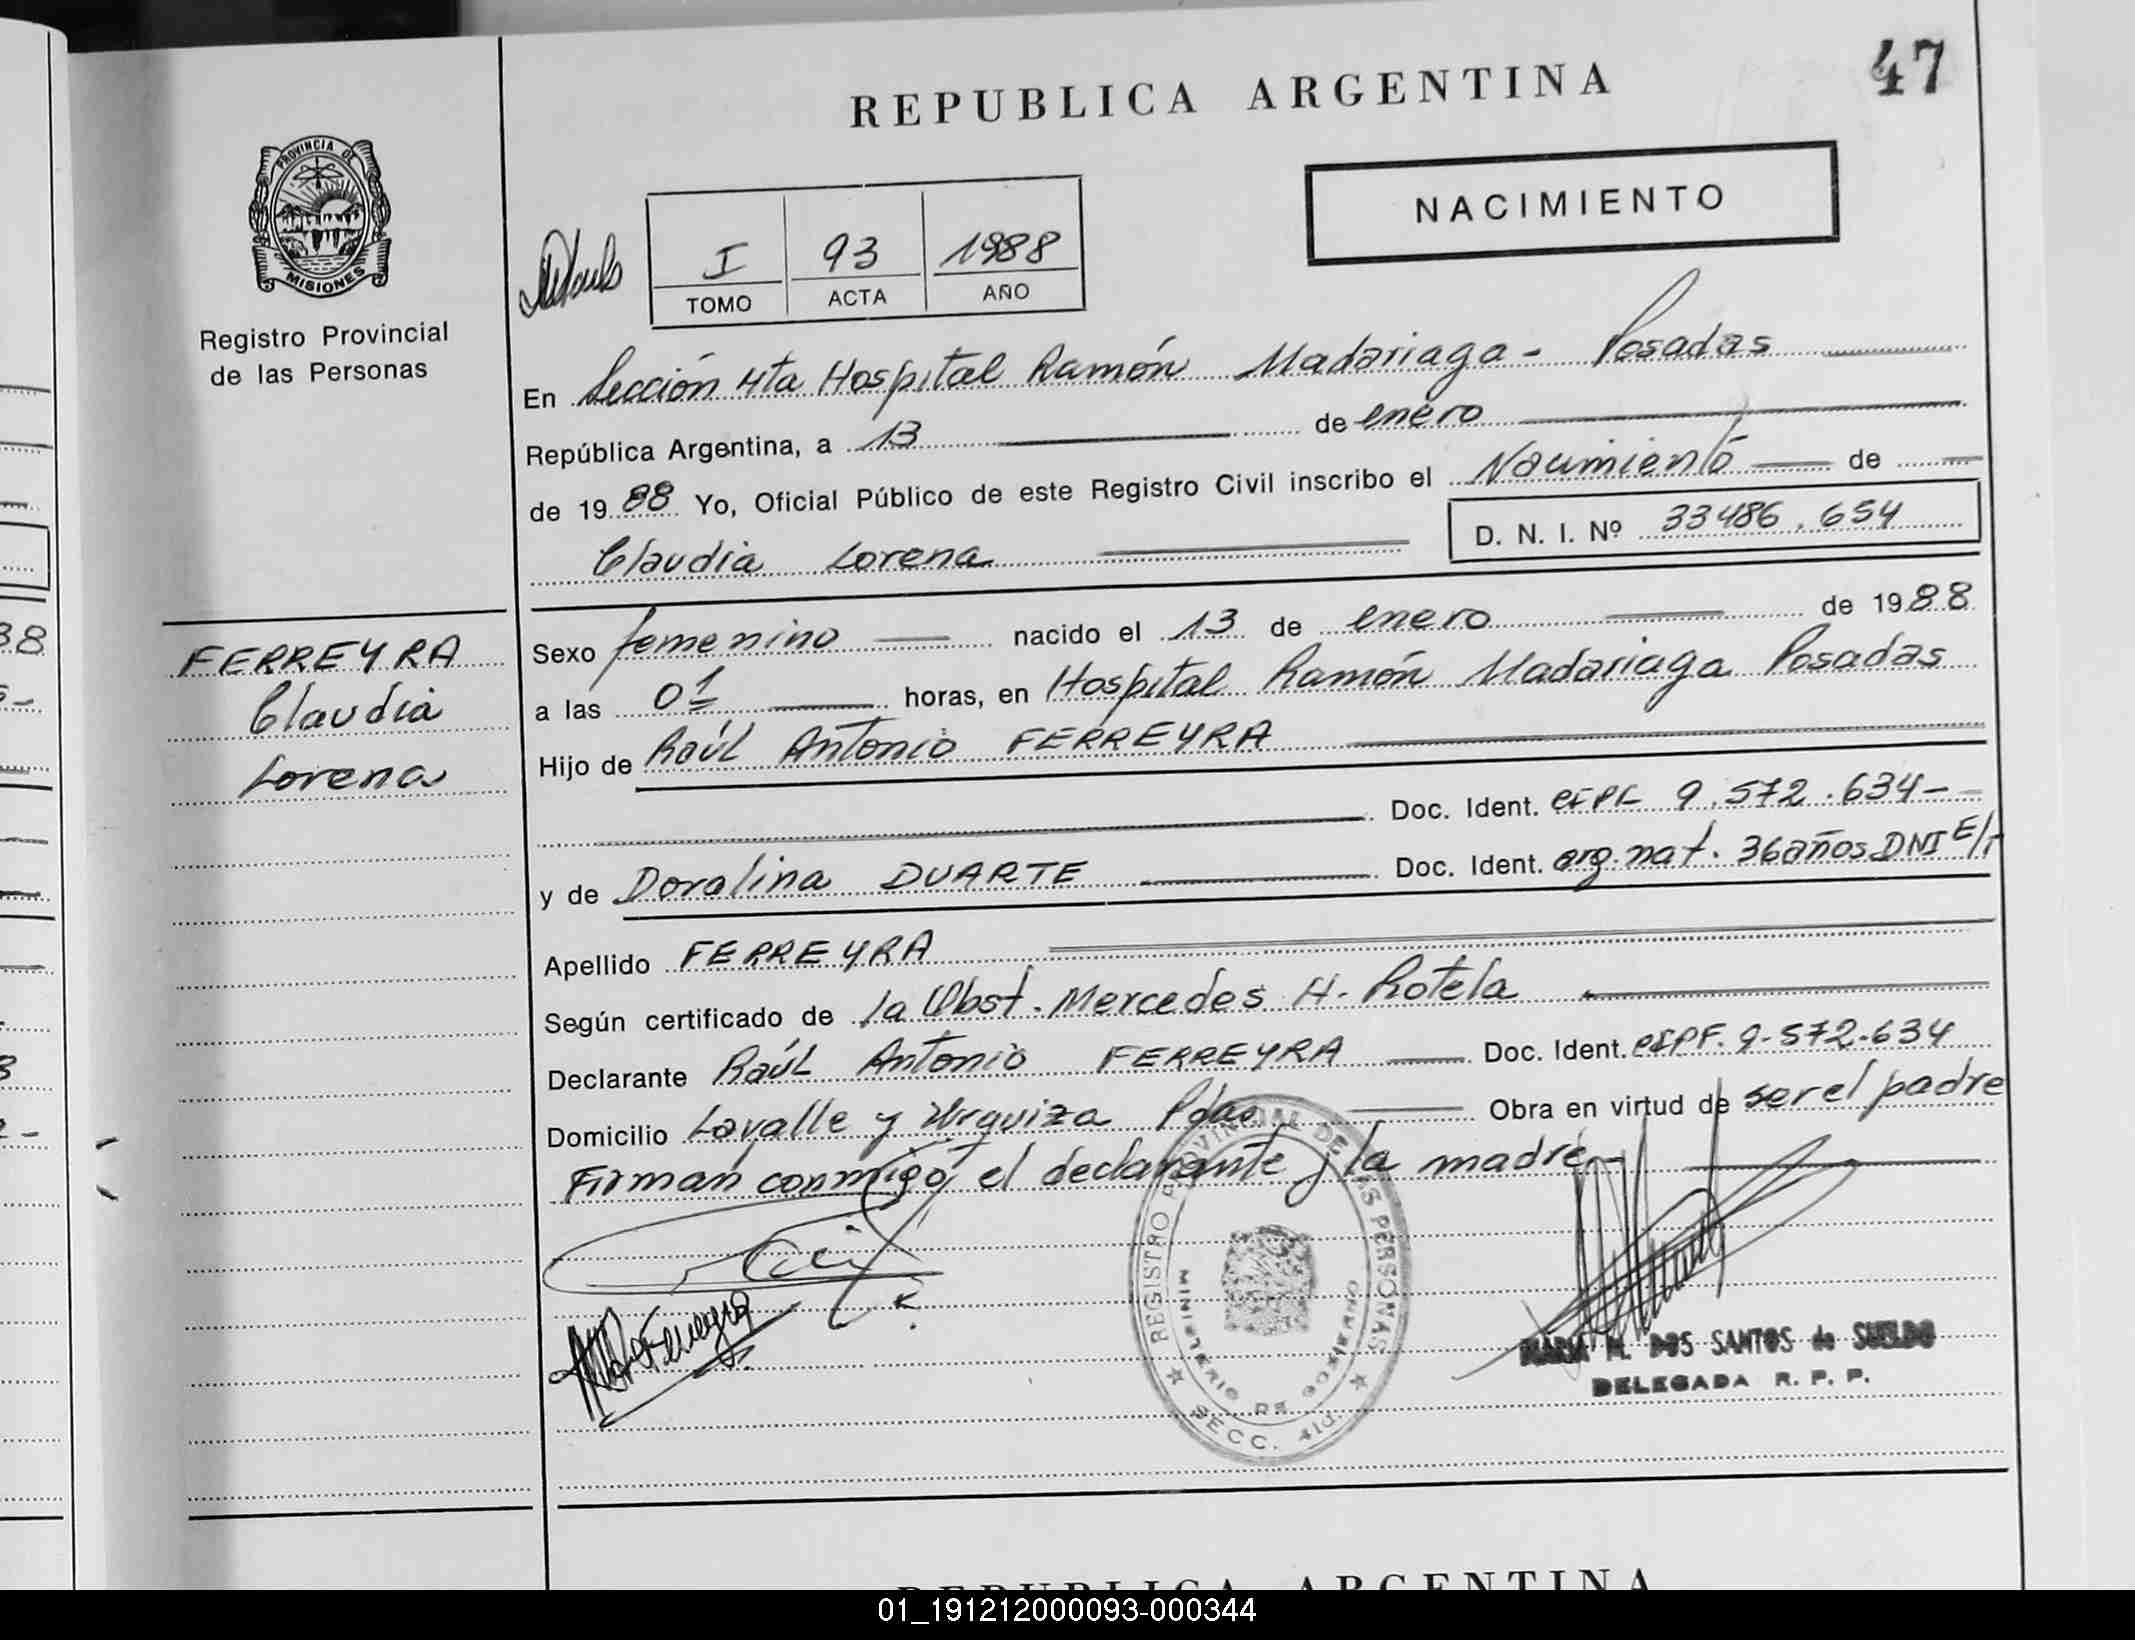 47
REPUBLICA ARGENTINA
NACIMIENTO
PROVINCIA DE
MISIONES
Registro Provincial
de las Personas
I 93 1988
TOMO ACTA AÑO
En Sección 4ta Hospital Ramón Madariaga - Posadas
República Argentina, a 13 de enero
de 1988 Yo, Oficial Público de este Registro Civil inscribo el Nacimiento de
Claudia Lorena
D. N. I. Nº 33486.654
FERREYRA
Claudia
Lorena
Sexo femenino nacido el 13 de enero de 1988
a las 01 horas, en Hospital Ramón Madariaga Posadas
Hijo de Raúl Antonio FERREYRA
Doc. Ident. 9.572.634-
y de Doralina DUARTE Doc. Ident. arg. nat. 36 años DNI E/T
Apellido FERREYRA
Según certificado de la Obst. Mercedes H. Rotela
Declarante Raúl Antonio FERREYRA Doc. Ident. 9-572-634
Domicilio Lavalle y Urquiza Pdas. Obra en virtud de ser el padre
Firman conmigo, el declarante y la madre.-
REGISTRO PROVINCIAL DE LAS PERSONAS
MINISTERIO DE GOBIERNO
SECC. 4ta.
MARIA M. DOS SANTOS de SUELDO
DELEGADA R. P. P.
REPUBLICA ARGENTINA
01_191212000093-000344